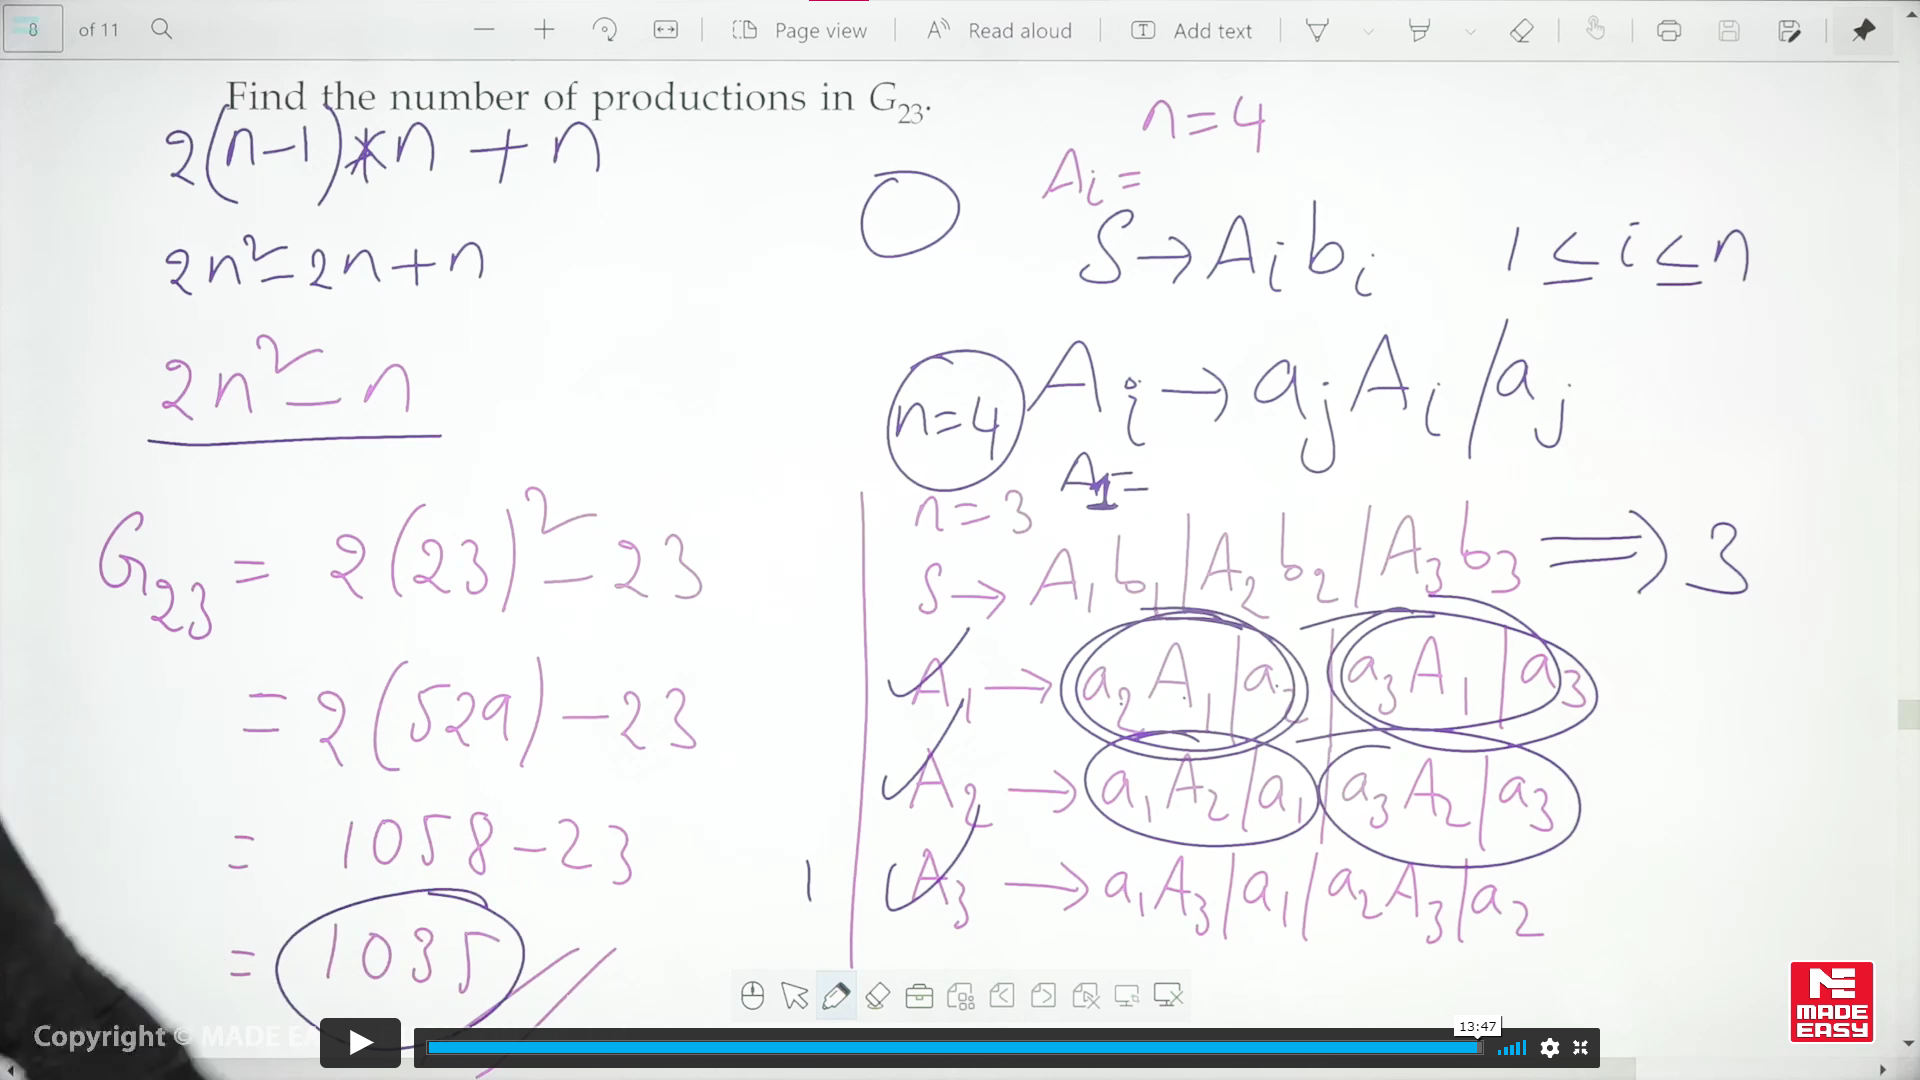 8 of 11 Page view Read aloud Add text
Find the number of productions in G₂₃.
2(n-1)*n + n
2n²-2n+n
2n²-n
G₂₃ = 2(23)²-23
= 2(529)-23
= 1058-23
= 1035
n=4
Aᵢ=
S→Aᵢbᵢ 1≤i≤n
n=4 Aᵢ→aⱼAᵢ/aⱼ
A₁=
n=3
S→A₁b₁|A₂b₂|A₃b₃ ⇒ 3
A₁→a₂A₁|a₂|a₃A₁|a₃
A₂→a₁A₂|a₁|a₃A₂|a₃
1 A₃→a₁A₃|a₁|a₂A₃|a₂
ME
MADE
EASY
Copyright © MADE E
13:47